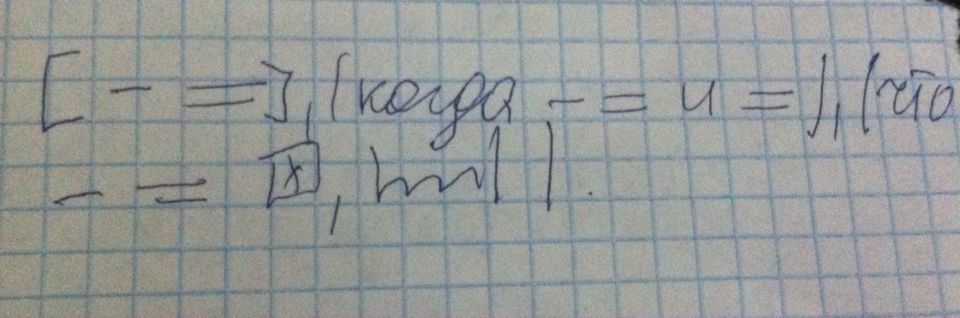 [ - = ], (когда - = и = ), (что
- = [x], |)|.